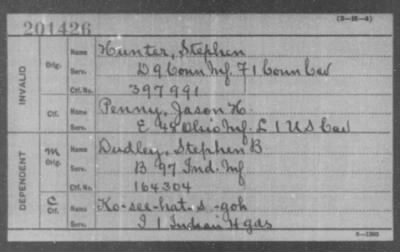 (3-35-a)
201426
INVALID
Orig. Name Hunter, Stephen
Serv. D 9 Conn Inf. F 1 Conn Cav
Ctf. No. 397991
Ctf. Name Penny, Jason H.
Serv. E 44 Ohio Inf. L 1 U S Cav
DEPENDENT
M Orig. Name Dudley, Stephen B
Serv. B 97 Ind. Inf
Ctf. No. 164304
C Ctf. Name Ko-see-hat-s-goh
Serv. I 1 Indian H gds